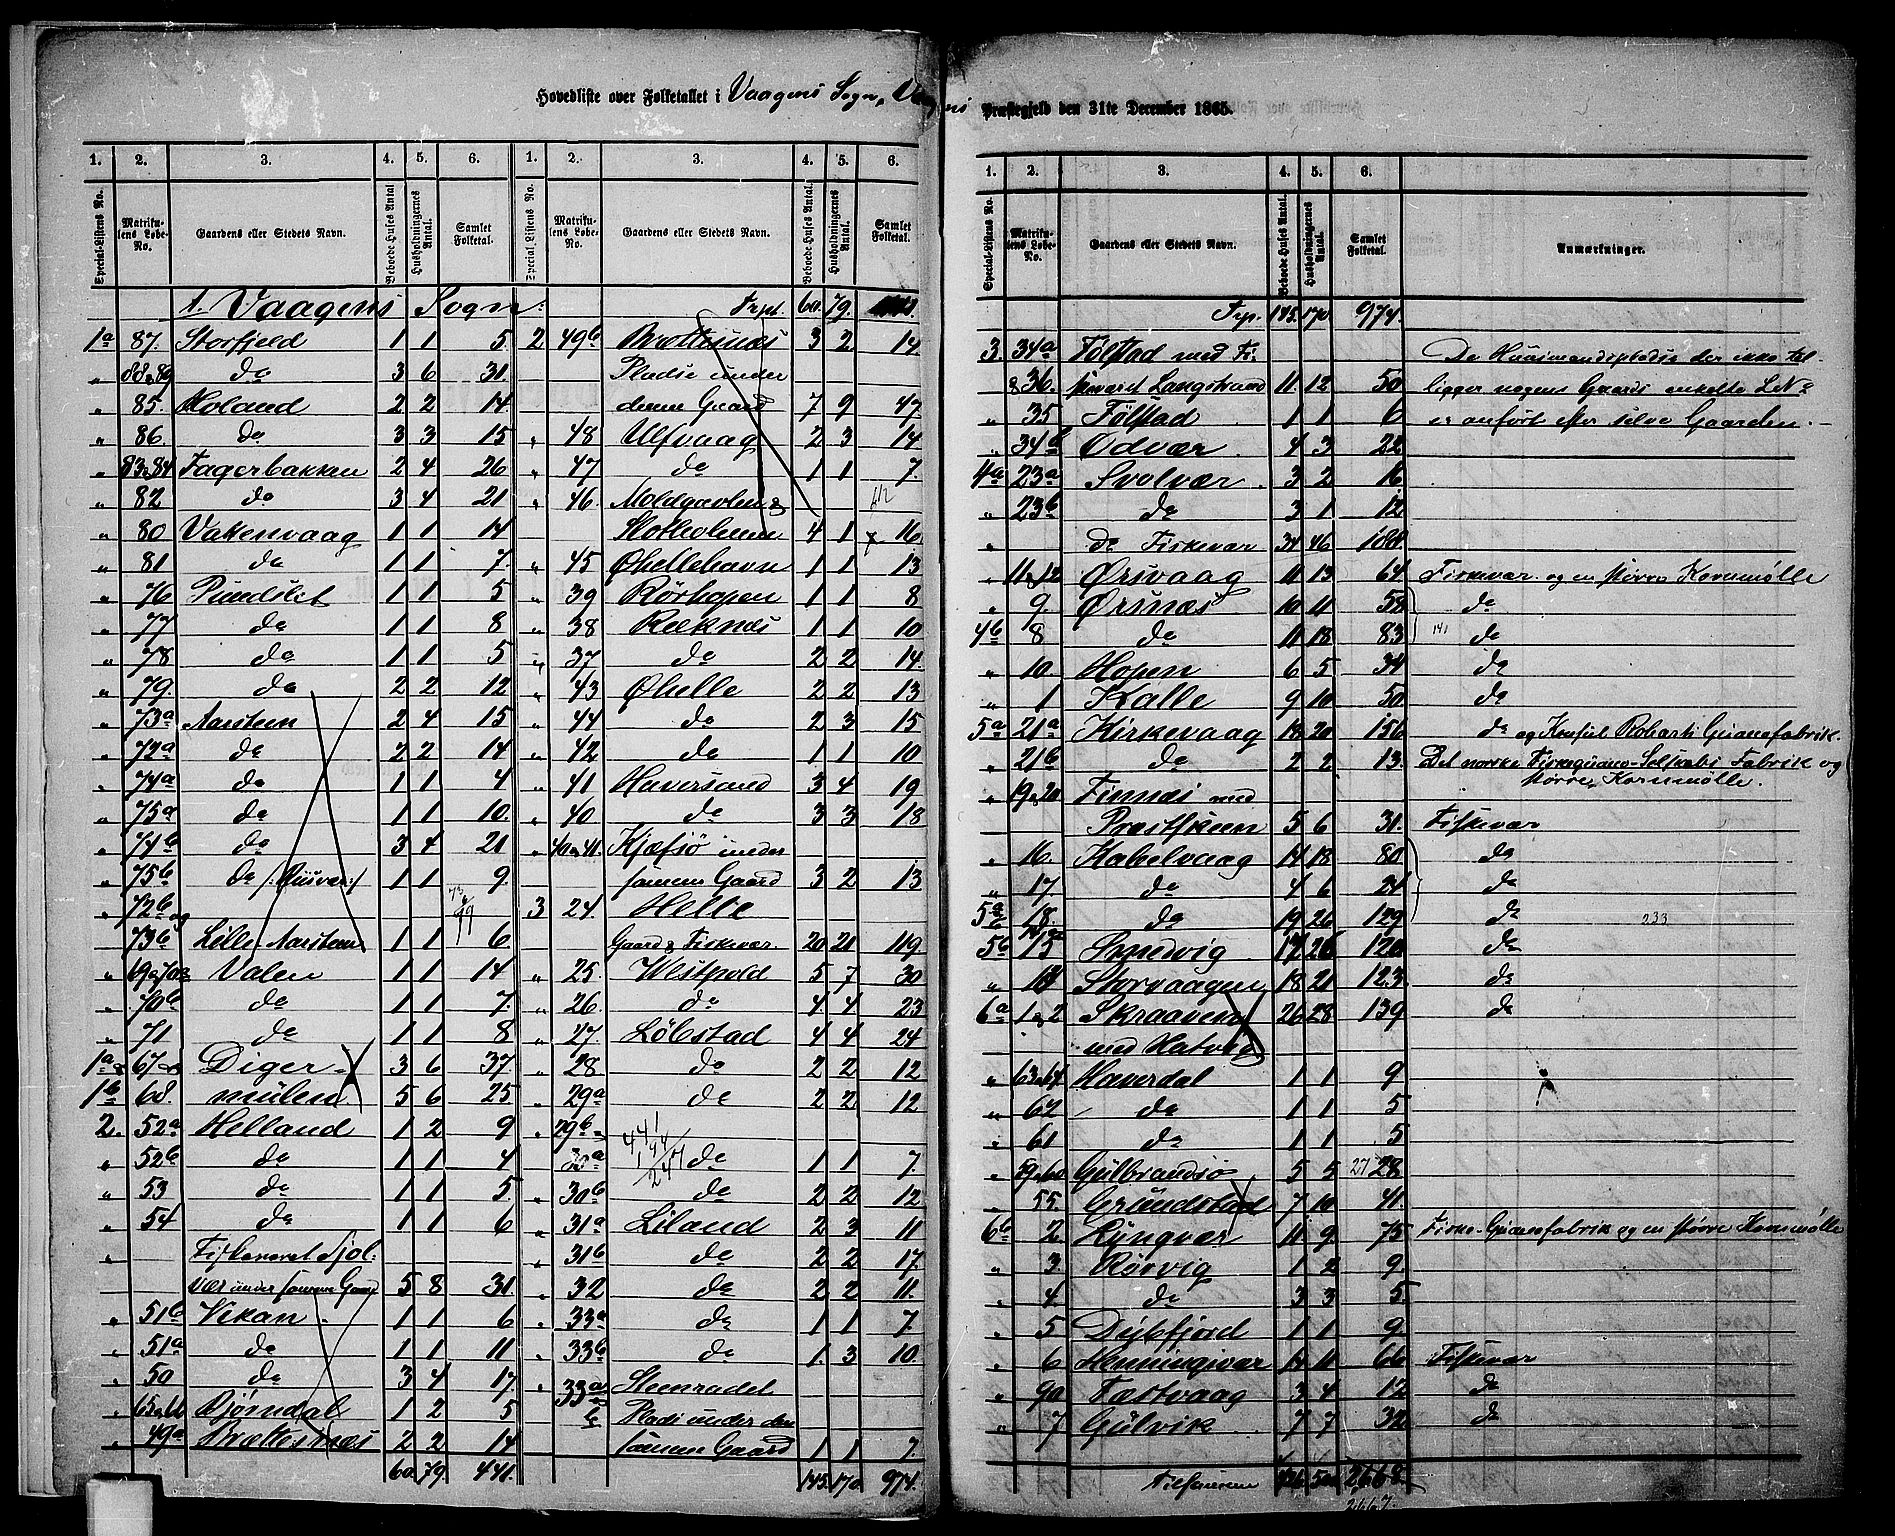 Hovedliste over Folketallet i Vaagens Sogn, Vaagens Præstegjeld den 31te December 1865.
1. 2. 3. 4. 5. 6. 1. 2. 3. 4. 5. 6.
Special-Listens No. Matrikulens Løbe-No. Gaardens eller Stedets Navn. Beboede Huses Antal Husholdningernes Antal. Samlet Folketal. Special-Listens No. Matrikulens Løbe-No. Gaardens eller Stedets Navn. Beboede Huses Antal. Husholdningernes Antal. Samlet Folketal.
1. Vaagens Sogn.
1a 87. Storfjeld 1 1 5.
" 88 & 89 do 3 6 31.
" 85. Holand 2 2 14.
" 86. do 3 3 15
" 83 & 84 Fagerbakken 2 4 26
" 82 do 3 4 21
" 80 Vatenvaag 1 1 14
" 81 do 1 1 7.
" 76 Pundslet 1 1 5
" 77 do 1 1 8
" 78 do 1 1 5
" 79. do 2 2 12
" 73a Aarsteen 2 4 15
" 72a do 2 2 14
" 74a do 1 1 4
" 75a do 1 1 10.
" 74b do 3 4 21
" 75b do /:Risvær:/ 1 1 9.
" 72b og
73b Lille Aarsteen 1 1 6
" Valen 1 1 14
" 70b do 1 1 7.
" 71 do 1 1 8
1a & 67 Diger- 3 6 37
1b 68. mulen. 5 6 25
2. 52a Helland 1 2 9
" 52b do 1 1 4
" 53 do 1 1 5
" 54 do 1 1 6
" Fiskeværet Sjol-
vær under samme Gaard 5 8 31
" 51b Vikan. 1 1 6
" 51a do 1 1 11
" 50 do 3 4 17
" 65 & 66 Bjørndal 1 2 5
" 49a Brettesnæs 2 2 14
60. 79. 441.
Trpt. 60 79.
2 49b Brettesnæs 3 2 14.
Pladse under
denne Gaard 7 9 47
" 48 Ulfvaag 2 3 14
" 47 do 1 1 7.
" 46 Moldgavlen &
Stokholmen 4 1 16
" 45 Øhellehavn 1 1 13
" 39 Rørhopen 1 1 8
" 38 Reeknæs 1 1 10
" 37 do 2 2 14.
" 43 Øhelle 2 2 13
" 44 do 2 3 15
" 42 do 1 1 10
" 41 Haversand 3 4 19
" 40 do 3 3 18
" 40 & 41 Kjæfsø under
samme Gaard 3 2 13
3 24 Helle
Gaard & Fiskevær. 20 21 119
" 25. Westpold 5 7 30
" 26. do 4 4 23
" 27. Løbstad 4 4 24
" 28 do 2 2 12
" 29a do 2 2 12
" 29b &
30a do 1 1 7.
" 30b do 2 2 12
" 31a Liland 2 3 11
" 31b do 2 2 17.
" 32 do 2 2 11.
" 33a do 1 1 7
" 33b do 1. 3 10.
" 33a & Steenradet
b Plads under den
samme Gaard 1 1 7.
145. 170. 974.
1. 2. 3. 4. 5. 6.
Special-Listens No. Matrikulens Løbe-No. Gaardens eller Stedets Navn. Beboede Huses Antal. Husholdningernes Antal. Samlet Folketal. Anmærkninger.
Trp. 145. 170 974.
3. 34a Følstad med Fi- De Huusmandspladse der ikke til-
& 36. skeværet Langstrand 11 12 50 ligger nogens Gaards enkelte L.No
" 35 Følstad 1 1 6 er anført efter selve Gaarden.—
" 34b Odvær 4 3 22
4a 23a Svolvær 3 2 16
" 23b do 3 1 12
" do Fiskevær 34 46 188
" 11 & 12 Ørsvaag 11 13 64 Fiskevær og en større Kornmølle
" 9. Ørsnæs 10 11 58 do
4b 8 do 11 18 83 141 do
" 10 Hopen 6 5 34 do
" 1 Kalle 9 10 50 do
5a 21a Kirkevaag 18 20 156 do og Konsul Robarts Guanofabrik.
" 21b do 2 2 13. Det norske Fiskeguano-Selskabs Fabrik og
større Kornmølle.
" 19 & 20 Finnæs med
Præstskeen 5 6 31. Fiskevær
" 16. Kabelvaag 14 18 80 do
" 17. do 4 6 24 do
5a 18. do 19 26 129 do 233
5b 15 Smedvig 17 26 120 do
" Storvaagen 18 21 123 do
6a 1 & 2 Skraaven 26 28 139 do
med Hatvig
" 63 & 64 Haverdal 1 1 9
" 62 do 1 1 5
" 61 do 1 1 5
" 59 & 60 Gulbrandsø 5 5 27 28
" 55. Grundstad 7 10 41.
6b 2 Lyngvær 11 9 75 Fiske-Guanofabrik og en større Kornmølle
" 3. Rørvig 1 2 9.
" 4. do 3 3 5.
" 5 Dybfjord 1 1 9.
" 6 Henningsvær 14 11 66 Fiskevær
" 90 Fæstvaag 3 4 12 do
" 7 Gulvik 7 7 32 do
Tilsammen 2668.
2667.